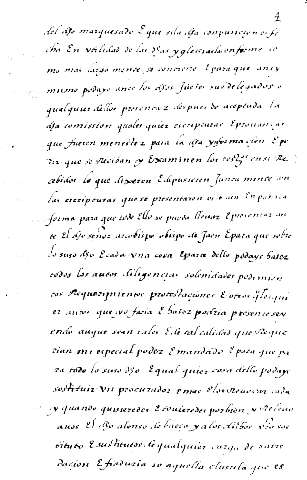 4
del dho marquesado E que si la dha conpusicion es fe
cha En utilidad de las dhas yglesias conforme co
mo mas largo mente se contiene E para que ansy
mismo podays ante los dhos Juezes sus delegados o
qualquier dellos presentar despues de aceptada la
dha comission quales quier escripturas E provanças
que fueren menester para la dha ynformacion E pe
dir que se Reciban y Examinen los testigos E ansi Re
cebidos lo que dixeren E dipusieren Junta mente con
las escripturas que se presentaron os den En publica
forma para que todo Ello se pueda llevar E presentar an
te El dho señor arçobispo obispo de Jaen E para que sobre
lo suso dho E cada una cosa E parte dello podays hazer
todos los autos diligencias solenidades pedimien
tos Requerimientos protestaciones E otros quales qui
er autos que yo faria E hazer podria presente sey
endo aunque sean tales E de tal calidad que Requie
ran mi especial poder E mandado E para que pa
ra todo lo suso dho E qual quier cosa dello podays
sostituir un procurador e mas E los Revocar cada
y quando quisieredes E
aueis El dho alonso de baeça y a los dhos sos
titutos E sustitutos de qualquier carga de satis
dacion E fiaduria so aquella clausula que es